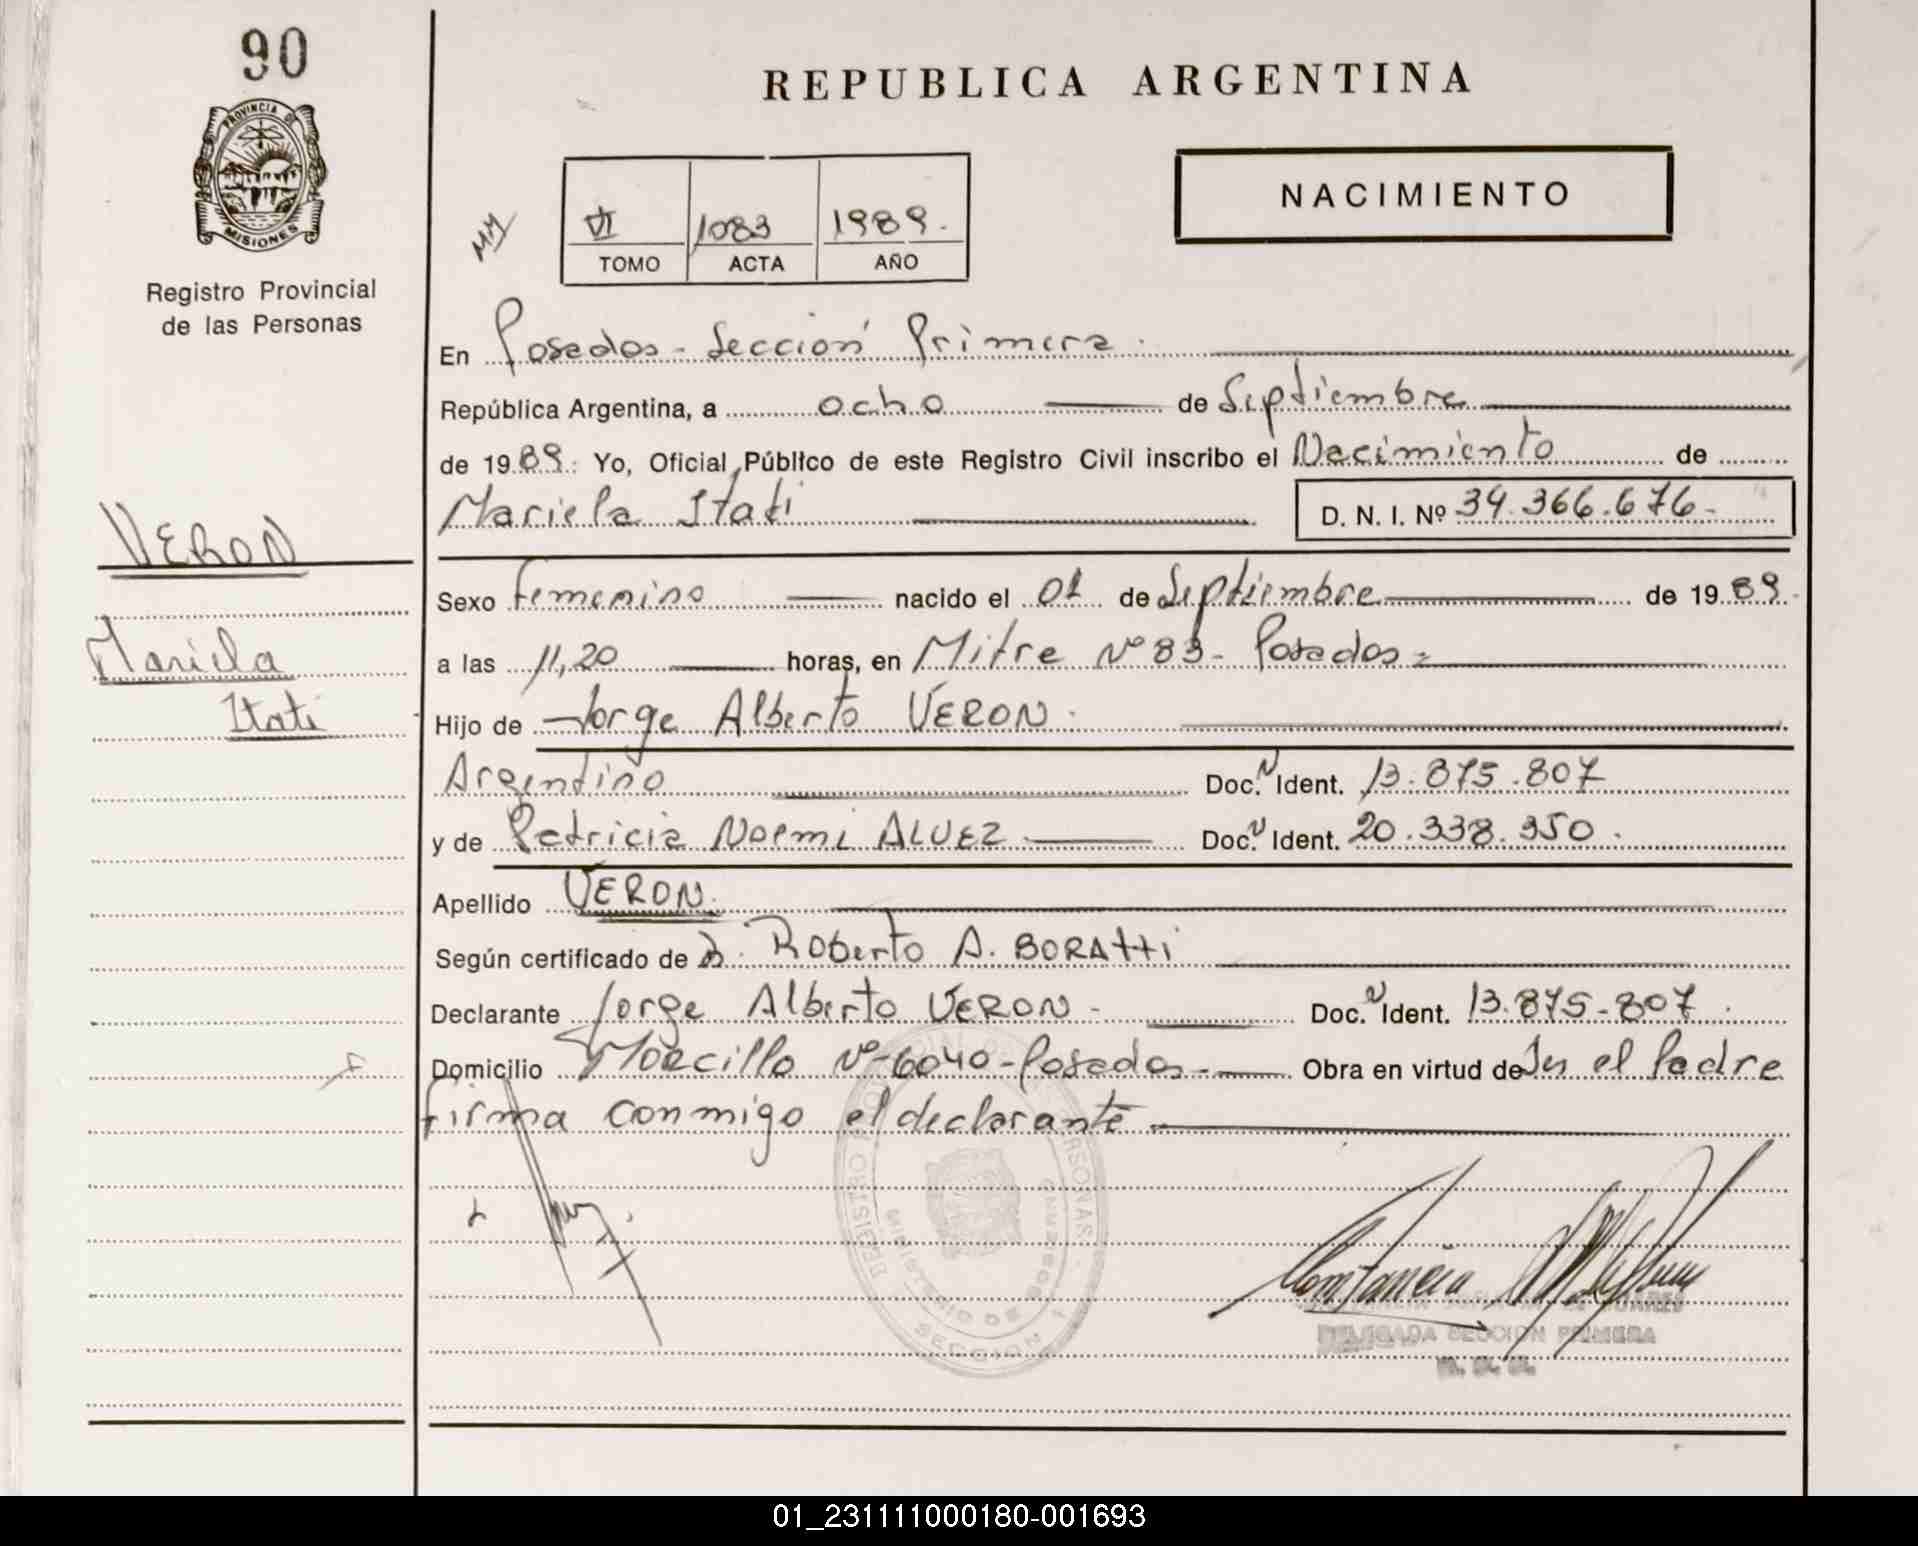 90
PROVINCIA DE
MISIONES
Registro Provincial
de las Personas
REPUBLICA ARGENTINA
NACIMIENTO
VI 1083 1989.
TOMO ACTA AÑO
En Posadas - Sección Primera.
República Argentina, a ocho de Septiembre
de 1989. Yo, Oficial Público de este Registro Civil inscribo el Nacimiento de
Mariela Itati D. N. I. Nº 34.366.676-
VERON
Mariela
Itati
Sexo Femenino nacido el 01 de Septiembre de 1989.
a las 11,20 horas, en Mitre Nº 83- Posadas-
Hijo de Jorge Alberto VERON.
Argentino Doc. N Ident. 13.875.807
y de Patricia Noemi ALVEZ Doc. N Ident. 20.338.350.
Apellido VERON.
Según certificado de D. Roberto A. BORATTI
Declarante Jorge Alberto VERON- Doc. N Ident. 13.875-807.
Domicilio Morcillo Nº-6040-Posadas- Obra en virtud de Ser el Padre
firma conmigo el declarante
REGISTRO PROVINCIAL DE PERSONAS
MINISTERIO DE GOBIERNO
SECCION 1
Constancia
DELEGADA SECCION PRIMERA
01_231111000180-001693